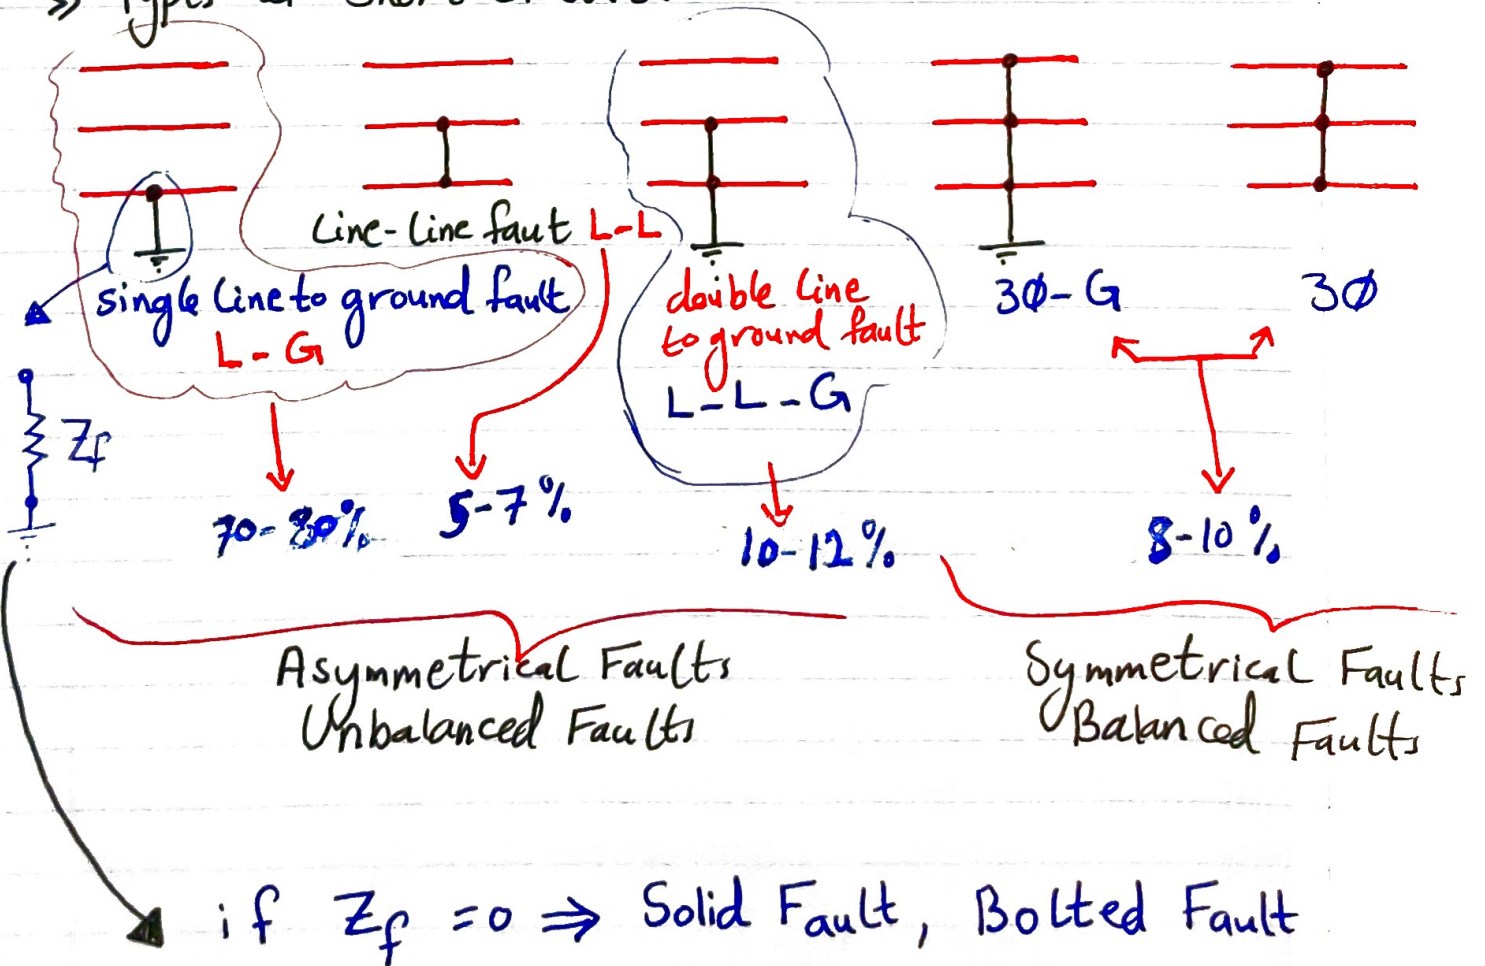 >> Types of Short Circuits:
Line-Line faut L-L
single line to ground fault
L-G
double line
to ground fault
L-L-G
3Ø-G
3Ø
Zf
70-80%
5-7%
10-12%
8-10%
Asymmetrical Faults
Unbalanced Faults
Symmetrical Faults
Balanced Faults
if Zf = 0 ⇒ Solid Fault, Bolted Fault